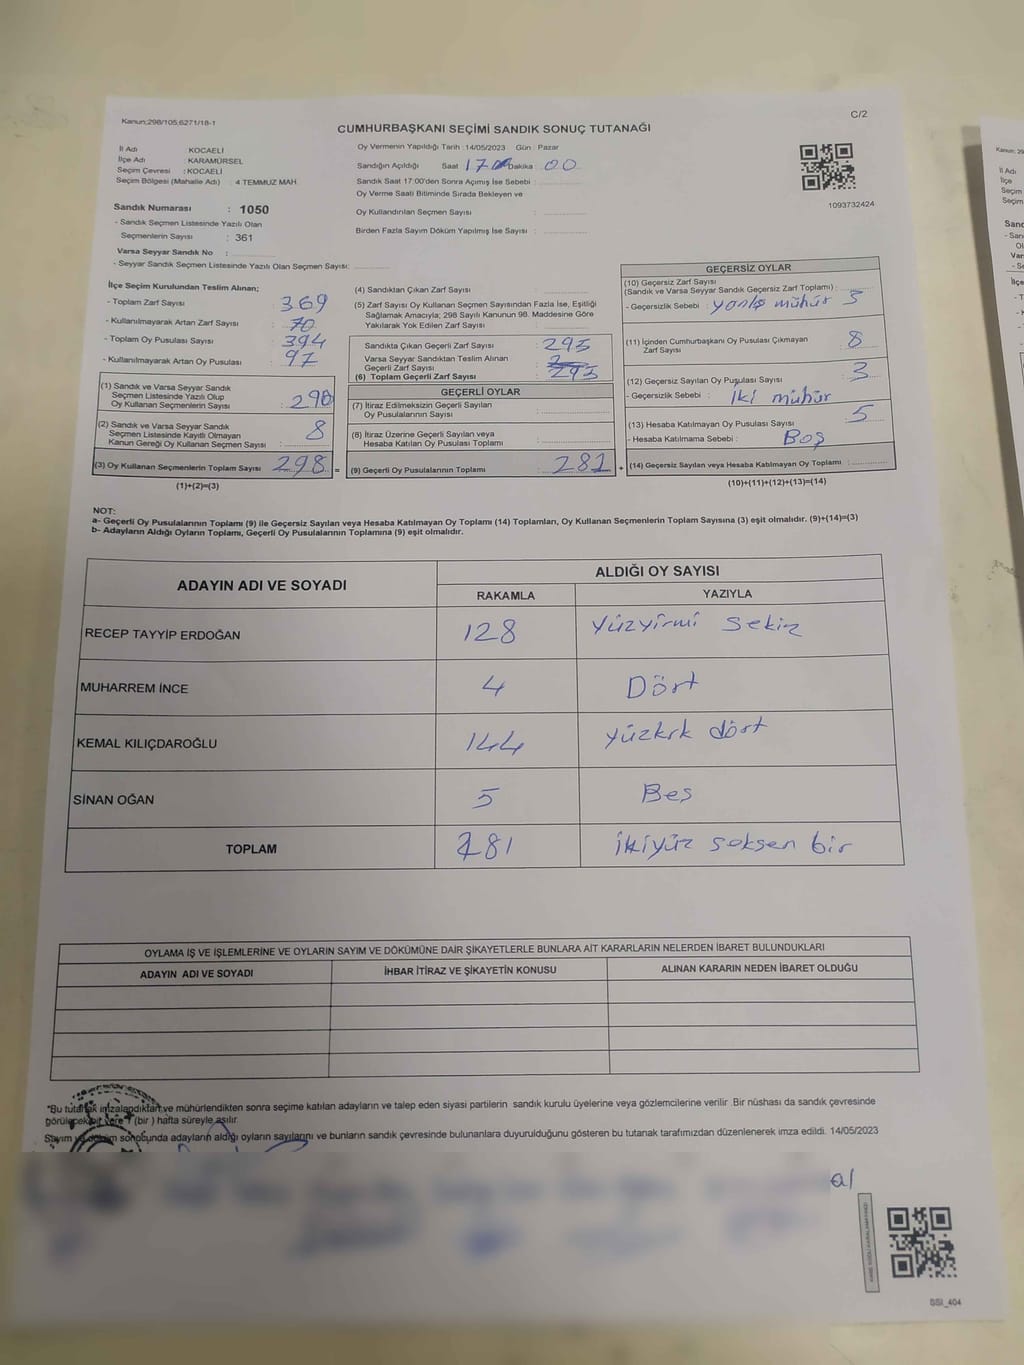 Kanun;298/105,6271/18-1
C/2
CUMHURBAŞKANI SEÇİMİ SANDIK SONUÇ TUTANAĞI
İl Adı : KOCAELİ
İlçe Adı : KARAMÜRSEL
Seçim Çevresi : KOCAELİ
Seçim Bölgesi (Mahalle Adı) : 4 TEMMUZ MAH.
Sandık Numarası : 1050
- Sandık Seçmen Listesinde Yazılı Olan
Seçmenlerin Sayısı : 361
Varsa Seyyar Sandık No :
- Seyyar Sandık Seçmen Listesinde Yazılı Olan Seçmen Sayısı:
Oy Vermenin Yapıldığı Tarih : 14/05/2023 Gün : Pazar
Sandığın Açıldığı Saat 17 Dakika : 00
Sandık Saat 17:00'den Sonra Açımış İse Sebebi :
Oy Verme Saati Bitiminde Sırada Bekleyen ve
Oy Kullandırılan Seçmen Sayısı :
Birden Fazla Sayım Döküm Yapılmış İse Sayısı :
1093732424
İlçe Seçim Kurulundan Teslim Alınan;
- Toplam Zarf Sayısı 369
- Kullanılmayarak Artan Zarf Sayısı 70
- Toplam Oy Pusulası Sayısı 394
- Kullanılmayarak Artan Oy Pusulası 97
(1) Sandık ve Varsa Seyyar Sandık
Seçmen Listesinde Yazılı Olup
Oy Kullanan Seçmenlerin Sayısı : 290
(2) Sandık ve Varsa Seyyar Sandık
Seçmen Listesinde Kayıtlı Olmayan
Kanun Gereği Oy Kullanan Seçmen Sayısı : 8
(3) Oy Kullanan Seçmenlerin Toplam Sayısı 298 =
(1)+(2)=(3)
(4) Sandıktan Çıkan Zarf Sayısı
(5) Zarf Sayısı Oy Kullanan Seçmen Sayısından Fazla İse, Eşitliği
Sağlamak Amacıyla; 298 Sayılı Kanunun 98. Maddesine Göre
Yakılarak Yok Edilen Zarf Sayısı :
Sandıkta Çıkan Geçerli Zarf Sayısı 295
Varsa Seyyar Sandıktan Teslim Alınan
Geçerli Zarf Sayısı
(6) Toplam Geçerli Zarf Sayısı 295
GEÇERLİ OYLAR
(7) İtiraz Edilmeksizin Geçerli Sayılan
Oy Pusulalarının Sayısı :
(8) İtiraz Üzerine Geçerli Sayılan veya
Hesaba Katılan Oy Pusulası Toplamı :
(9) Geçerli Oy Pusulalarının Toplamı : 281 +
GEÇERSİZ OYLAR
(10) Geçersiz Zarf Sayısı
(Sandık ve Varsa Seyyar Sandık Geçersiz Zarf Toplamı) :
- Geçersizlik Sebebi : yanlış mühür 3
(11) İçinden Cumhurbaşkanı Oy Pusulası Çıkmayan
Zarf Sayısı 8
(12) Geçersiz Sayılan Oy Pusulası Sayısı : 3
- Geçersizlik Sebebi : iki mühür
(13) Hesaba Katılmayan Oy Pusulası Sayısı : 5
- Hesaba Katılmama Sebebi : Boş
(14) Geçersiz Sayılan veya Hesaba Katılmayan Oy Toplamı :
(10)+(11)+(12)+(13)=(14)
NOT:
a- Geçerli Oy Pusulalarının Toplamı (9) ile Geçersiz Sayılan veya Hesaba Katılmayan Oy Toplamı (14) Toplamları, Oy Kullanan Seçmenlerin Toplam Sayısına (3) eşit olmalıdır. (9)+(14)=(3)
b- Adayların Aldığı Oyların Toplamı, Geçerli Oy Pusulalarının Toplamına (9) eşit olmalıdır.
ADAYIN ADI VE SOYADI
ALDIĞI OY SAYISI
RAKAMLA YAZIYLA
RECEP TAYYİP ERDOĞAN 128 yüzyirmi sekiz
MUHARREM İNCE 4 Dört
KEMAL KILIÇDAROĞLU 144 yüzkrk dört
SİNAN OĞAN 5 Beş
TOPLAM 281 ikiyüz seksen bir
OYLAMA İŞ VE İŞLEMLERİNE VE OYLARIN SAYIM VE DÖKÜMÜNE DAİR ŞİKAYETLERLE BUNLARA AİT KARARLARIN NELERDEN İBARET BULUNDUKLARI
ADAYIN ADI VE SOYADI İHBAR İTİRAZ VE ŞİKAYETİN KONUSU ALINAN KARARIN NEDEN İBARET OLDUĞU
*Bu tutanak imzalandıktan ve mühürlendikten sonra seçime katılan adayların ve talep eden siyasi partilerin sandık kurulu üyelerine veya gözlemcilerine verilir .Bir nüshası da sandık çevresinde
görülecek bir yere 1 (bir ) hafta süreyle asılır.
Sayım ve döküm sonucunda adayların aldığı oyların sayılarını ve bunların sandık çevresinde bulunanlara duyurulduğunu gösteren bu tutanak tarafımızdan düzenlenerek imza edildi. 14/05/2023
al
SSI_404